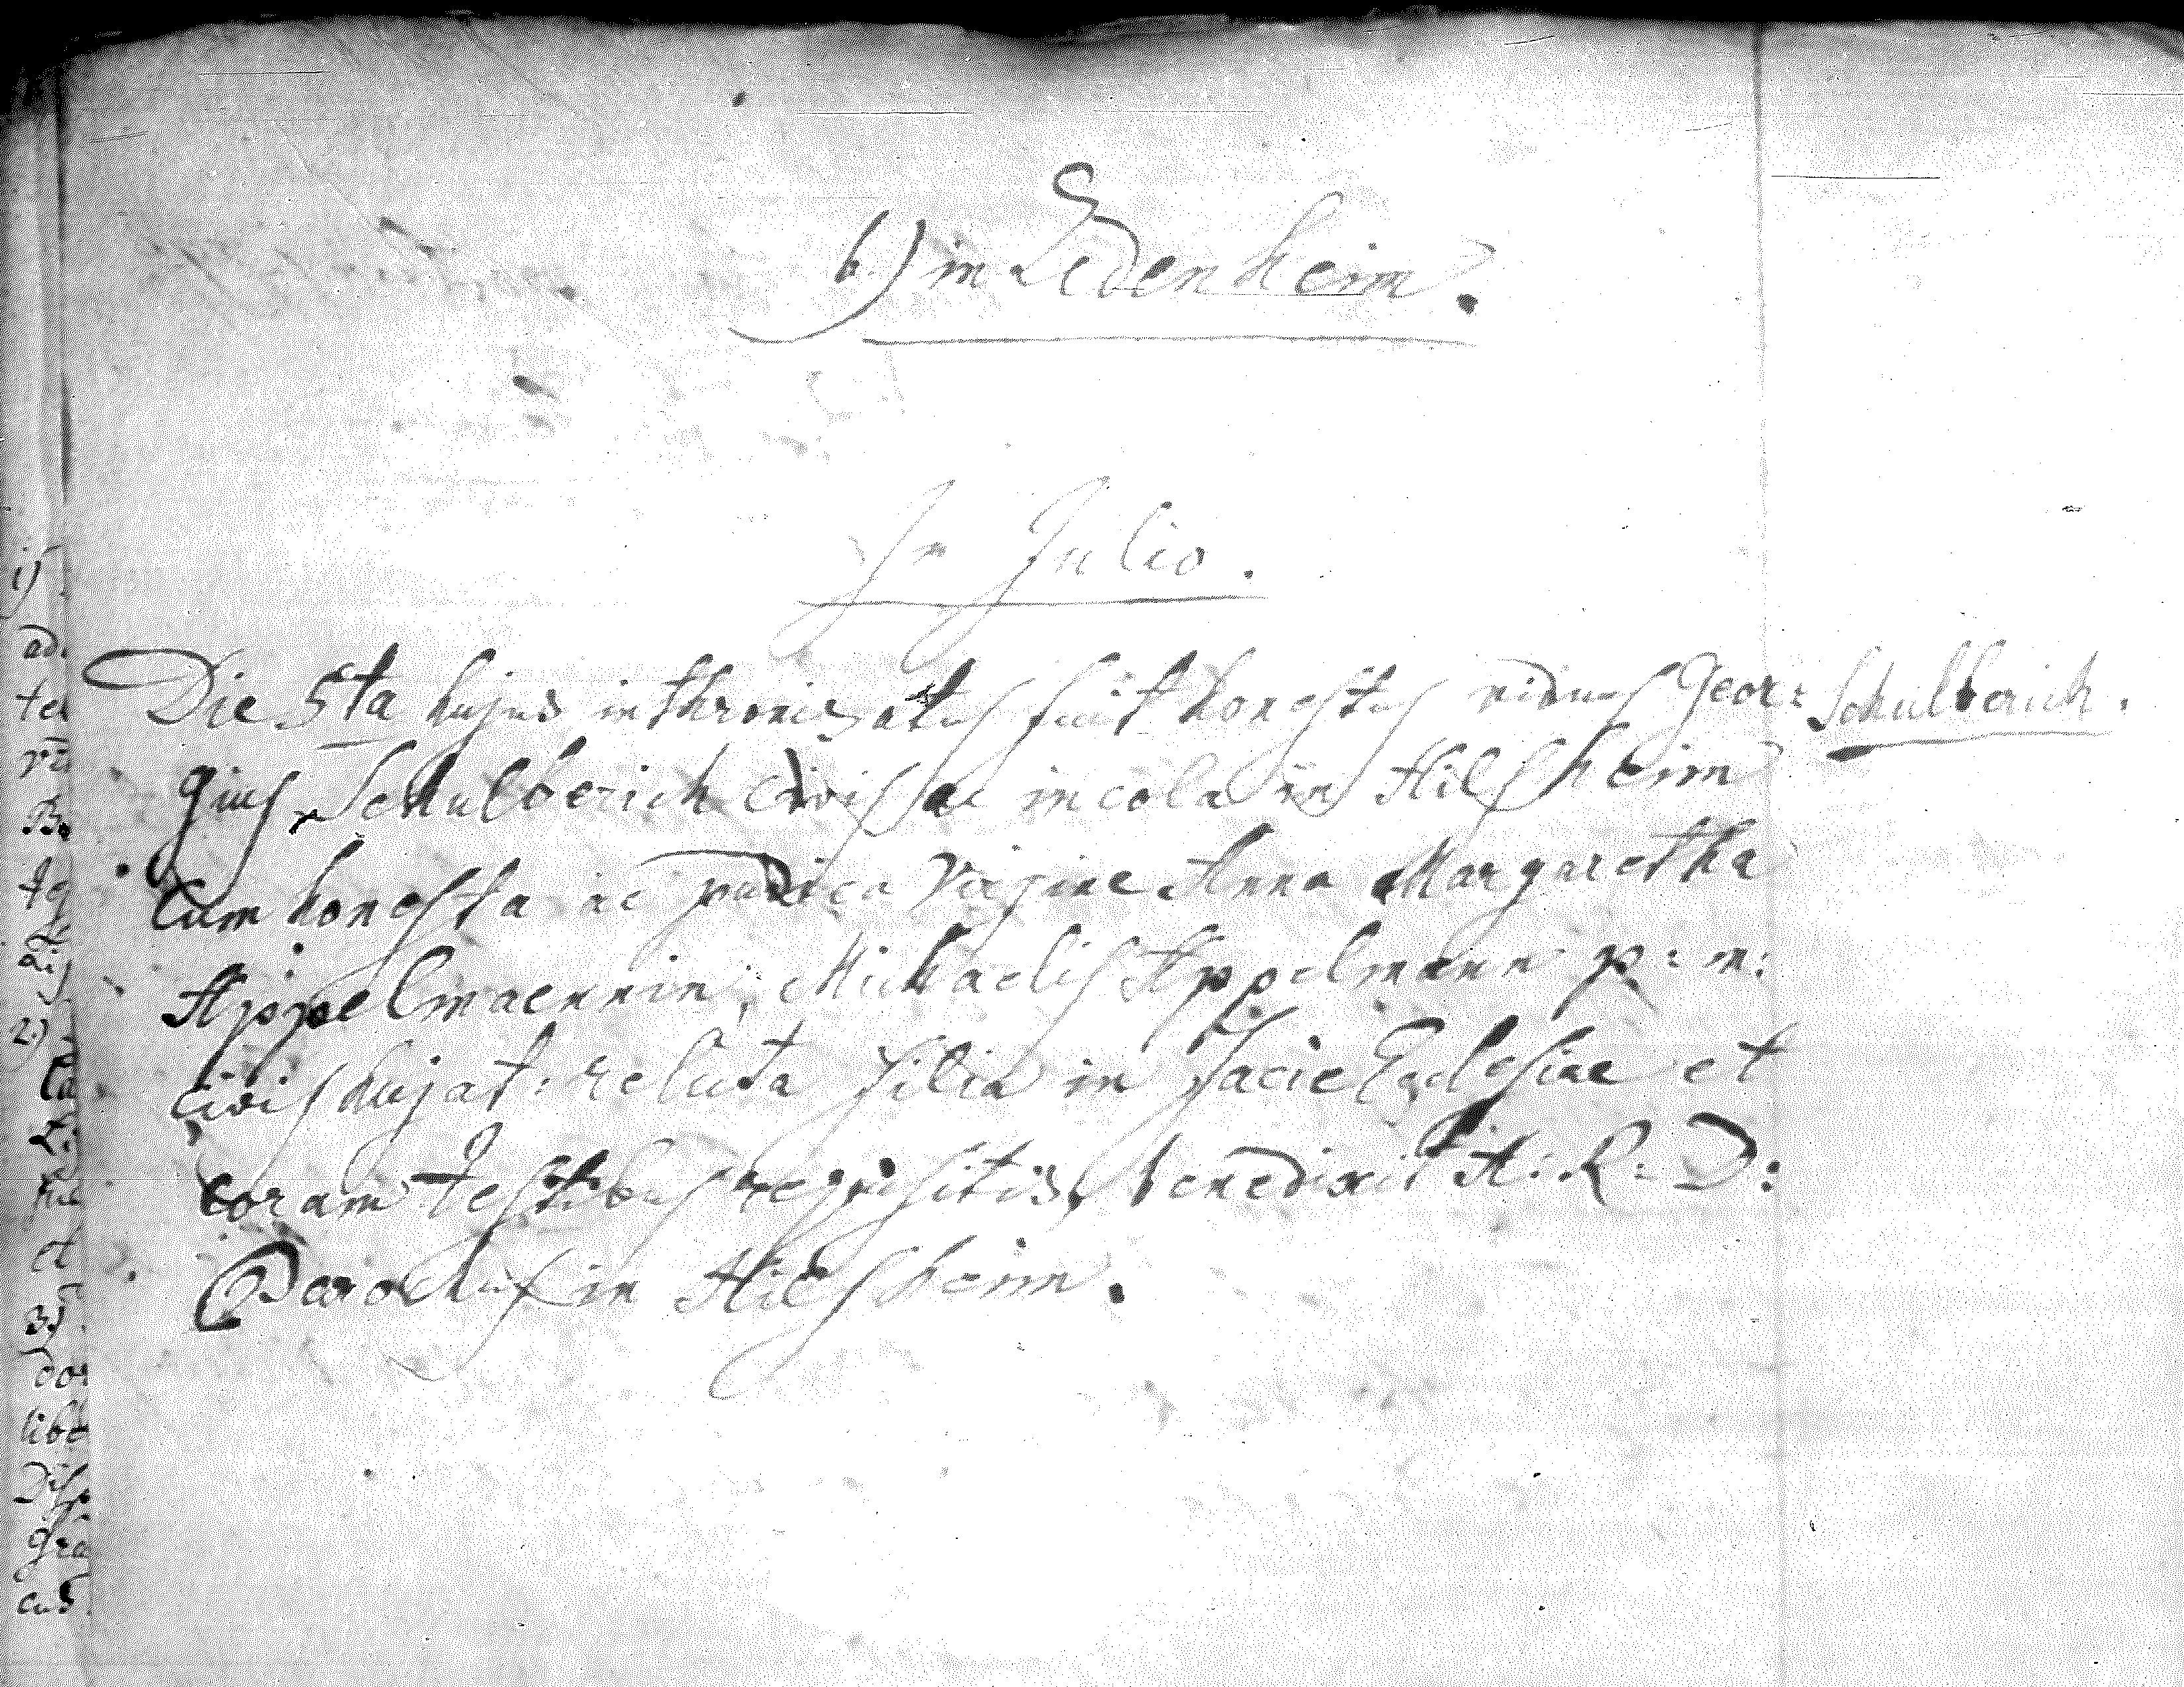 b.) in Edenheim.
In Julio.
Die 5ta hujus inthronisatus fuit honestus viduus Geor: Schulberich.
gius Schulberich civis ac incola in Hilsheim
Cum honesta ac pudica Virgine Anna Margaretha
Appelmaennin, Michaelis Appelmann p: m:
civis hujat: relicta filia in facie Ecclesiae et
coram testibus requisitis, benedixit A: R: D:
Parochus in Hilsheim.